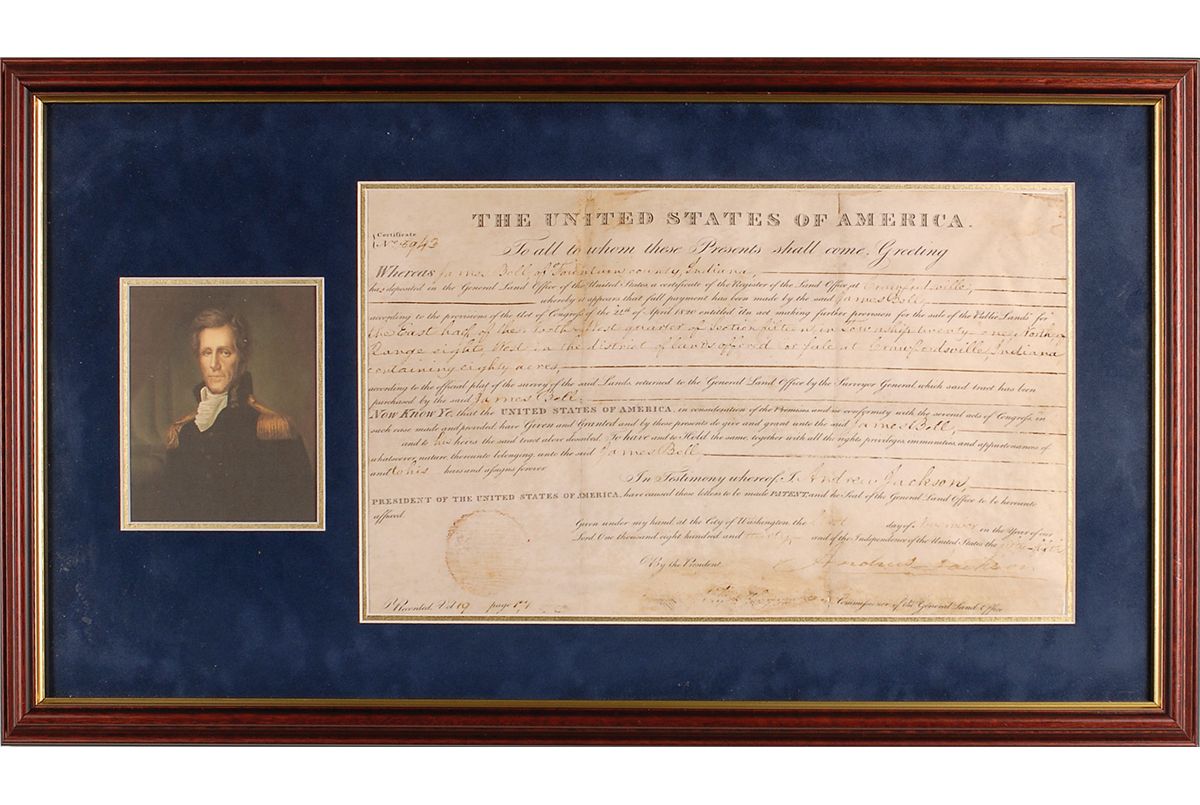 THE UNITED STATES OF AMERICA.
Certificate
No. 5943
To all to whom these Presents shall come, Greeting
Whereas James Bell, of Fountain county, Indiana,
has deposited in the General Land Office of the United States, a certificate of the Register of the Land Office at Crawfordsville,
whereby it appears that full payment has been made by the said James Bell,
according to the provisions of the Act of Congress of the 24th of April 1820 entitled "An act making further provision for the sale of the Public Lands" for
the East half of the North West quarter of Section fifteen, in Township twenty-one, North, of
Range eight, West, in the district of lands offered for sale at Crawfordsville, Indiana
containing eighty acres,
according to the official plat of the survey of the said Lands returned to the General Land Office by the Surveyor General, which said tract has been
purchased by the said James Bell
Now Know Ye, that the UNITED STATES OF AMERICA, in consideration of the Premises and in conformity with the several acts of Congress, in
such case made and provided, have Given and Granted and by these presents do give and grant unto the said James Bell,
and to his heirs the said tract above described. To have and to Hold the same, together with all the rights, privileges, immunities, and appurtenances of
whatsoever nature, thereunto belonging, unto the said James Bell,
and to his heirs and assigns forever
In Testimony whereof, I, Andrew Jackson,
PRESIDENT OF THE UNITED STATES OF AMERICA, have caused these letters to be made PATENT, and the Seal of the General Land Office to be hereunto
affixed
Given under my hand, at the City of Washington, the day of in the Year of our
Lord One thousand eight hundred and and of the Independence of the United States the
By the President Andrew Jackson
Commissioner of the General Land Office
Recorded, Vol 19 page